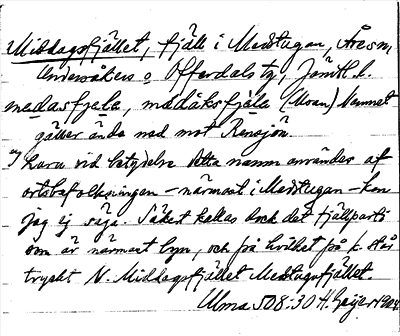 Middagsfjället, fjäll i Medstugan, Åre sn,
Undersåkers o Offerdals tg, Jämtl. l.
medasfjala, medåksfjäla (Moan) Namnet
gäller ända ned mot Rensjön.
vid betydelse detta namn användes af
ortsbefolkningen – närmast i Medstugan – kan
jag ej säga. Säkert kallas dock det fjällparti
som är närmast byn, och på hvilket på k. står
tryckt N. Middagsfjället Medstugufjället.
Ulma 508:30 H. Geijer